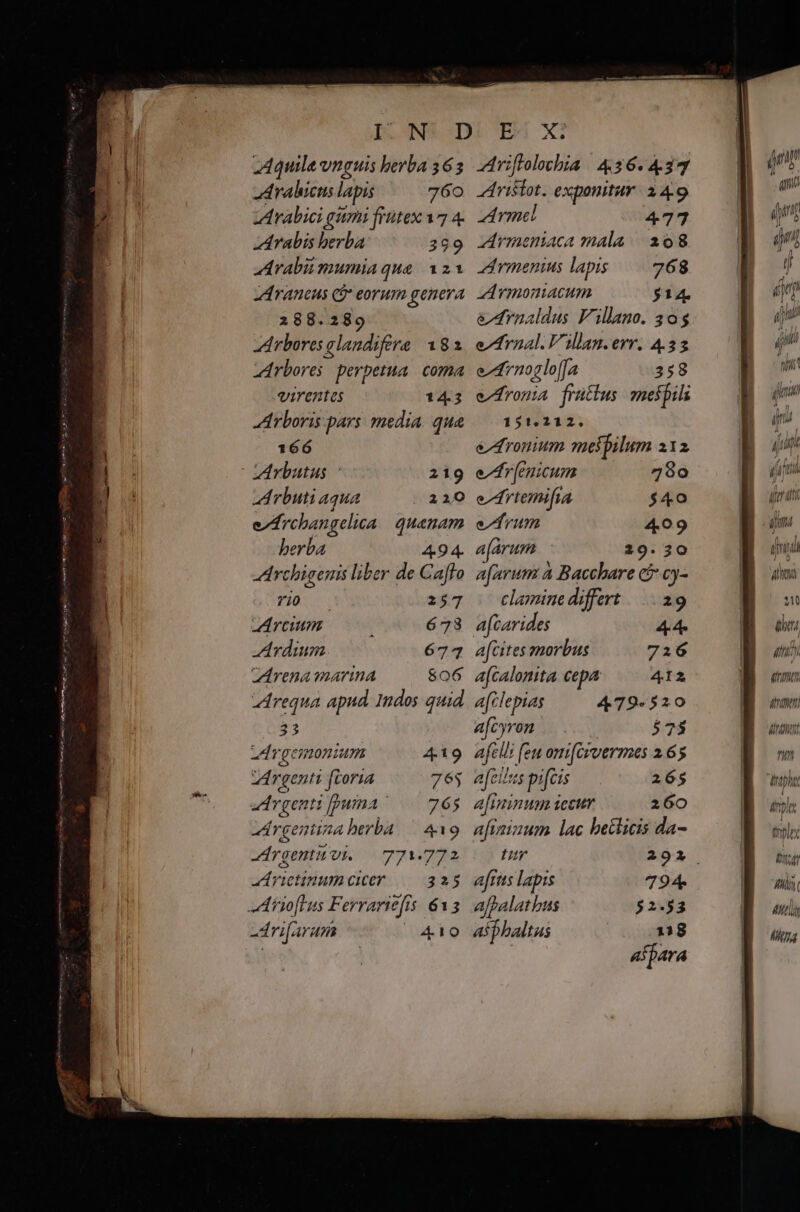 I N D E X.
Aquilæ vnguis herba 363
Arabicus lapis 760
Arabici gūmi frutex 174.
Arabis herba 399
Arabū mumia quæ 121
Araneus & eorum genera
288.289
Arbores glandiferæ 182
Arbores perpetua coma
virentes 143
Arboris pars media quæ
166
Arbutus 219
Arbuti aqua 220
Archangelica quænam
herba 494.
Archigenis liber de Casto
rio 257
Arcium 678
Ardium 677
Arena marina 806
Arequa apud Indos quid
33
Argemonium 419
Argenti scoria 765
Argenti spuma 765
Argentina herba 419
Argentū vi. 771.772
Arietinum cicer 325
Ariostus Ferrariēsis 613
Arisarum 410
Aristolochia 436.437
Aristot. exponitur 249
Armel 477
Armeniaca mala 208
Armenius lapis 768
Armoniacum 514.
Arnaldus Villano. 305
Arnal. Villan. err. 433
Arnoglossa 358
Aronia fructus mespili
151.212.
Aronium mespilum 212
Arsenicum 780
Artemisia 540
Arum 409
asarum 29.30
asarum à Bacchare & cy-
clamine differt 29
ascarides 44.
ascites morbus 726
ascalonita cepa 412
asclepias 479.520
ascyron 575
aselli seu oniscivermes 265
asellus piscis 265
asininum iecur 260
asininum lac hecticis da-
tur 292
asius lapis 794.
aspalathus 52.53
asphaltus 118
aspara